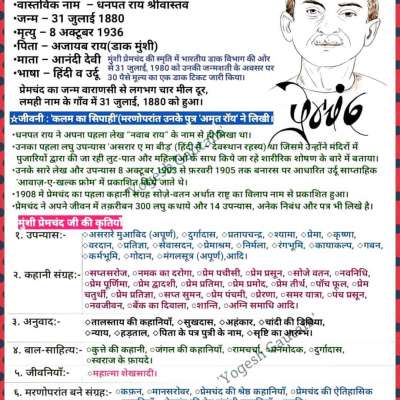 •वास्तविक नाम – धनपत राय श्रीवास्तव
•जन्म – 31 जुलाई 1880
•मृत्यु – 8 अक्टूबर 1936
•पिता – अजायब राय(डाक मुंशी)
•माता – आनंदी देवी
•भाषा – हिंदी व उर्दू
मुंशी प्रेमचंद की स्मृति में भारतीय डाक विभाग की ओर
से 31 जुलाई, 1980 को उनकी जन्मशती के अवसर पर
30 पैसे मूल्य का एक डाक टिकट जारी किया।
प्रेमचंद का जन्म वाराणसी से लगभग चार मील दूर,
लमही नाम के गाँव में 31 जुलाई, 1880 को हुआ।
प्रेमचंद
☆जीवनी : 'कलम का सिपाही'(मरणोपरांत उनके पुत्र 'अमृत रॉय' ने लिखी।
•धनपत राय ने अपना पहला लेख "नवाब राय" के नाम से ही लिखा था।
•उनका पहला लघु उपन्यास 'असरार ए मा बीड' (हिंदी में - देवस्थान रहस्य) था जिसमे उन्होंने मंदिरों में
पुजारियों द्वारा की जा रही लुट-पात और महिलाओं के साथ किये जा रहे शारीरिक शोषण के बारे में बताया।
•उनके सारे लेख और उपन्यास 8 अक्टूबर 1903 से फ़रवरी 1905 तक बनारस पर आधारित उर्दू साप्ताहिक
'आवाज़-ए-खल्क फ़्रोम' में प्रकाशित किये जाते थे।
•1908 मे प्रेमचंद का पहला कहानी संग्रह सोज़े-वतन अर्थात राष्ट्र का विलाप नाम से प्रकाशित हुआ।
•प्रेमचंद ने अपने जीवन में तक़रीबन 300 लघु कथाये और 14 उपन्यास, अनेक निबंध और पत्र भी लिखे है।
मुंशी प्रेमचंद जी की कृतियाँ
१. उपन्यास:- ◇असरारे मुआबिद (अपूर्ण), ◇दुर्गादास, ◇प्रतापचन्द्र, ◇श्यामा, ◇प्रेमा, ◇कृष्णा,
◇वरदान, ◇प्रतिज्ञा, ◇सेवासदन, ◇प्रेमाश्रम, ◇निर्मला, ◇रंगभूमि, ◇कायाकल्प, ◇गबन,
◇कर्मभूमि, ◇गोदान, ◇मंगलसूत्र (अपूर्ण),आदि।
२. कहानी संग्रह:- ◇सप्तसरोज, ◇नमक का दरोगा, ◇प्रेम पचीसी, ◇प्रेम प्रसून, ◇सोजे वतन, ◇नवनिधि,
◇प्रेम पूर्णिमा, ◇प्रेम द्वादशी, ◇प्रेम प्रतिमा, ◇प्रेम प्रमोद, ◇प्रेम तीर्थ, ◇पाँच फूल, ◇प्रेम
चतुर्थी, ◇प्रेम प्रतिज्ञा, ◇सप्त सुमन, ◇प्रेम पंचमी, ◇प्रेरणा, ◇समर यात्रा, ◇पंच प्रसून,
◇नवजीवन, ◇बैंक का दिवाला, ◇शान्ति, ◇अग्नि समाधि आदि।
३. अनुवाद:- ◇तालस्ताय की कहानियाँ, ◇सुखदास, ◇अहंकार, ◇चांदी की डिबिया,
◇न्याय, ◇हड़ताल, ◇पिता के पत्र पुत्री के नाम, ◇सृष्टि का आरम्भ।
४. बाल-साहित्य:- ◇कुत्ते की कहानी, ◇जंगल की कहानियाँ, ◇रामचर्चा, ◇मनमोदक, ◇दुर्गादास,
◇स्वराज के फ़ायदे।
५. जीवनियाँ:- ◇महात्मा शेखसादी।
६. मरणोपरांत बने संग्रह:- ◇कफ़न, ◇मानसरोवर, ◇प्रेमचंद की श्रेष्ठ कहानियाँ, ◇प्रेमचंद की ऐतिहासिक